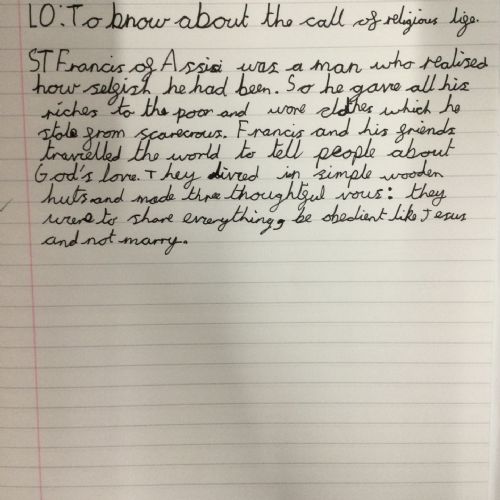 LO: To know about the call of religious life.
ST Francis of Assisi was a man who realised
how selfish he had been. So he gave all his
riches to the poor and wore clothes which he
stole from scarecrows. Francis and his friends
travelled the world to tell people about
God's love. They lived in simple wooden
huts and made three thoughtful vous: they
were to share everything, be obedient like Jesus
and not marry.